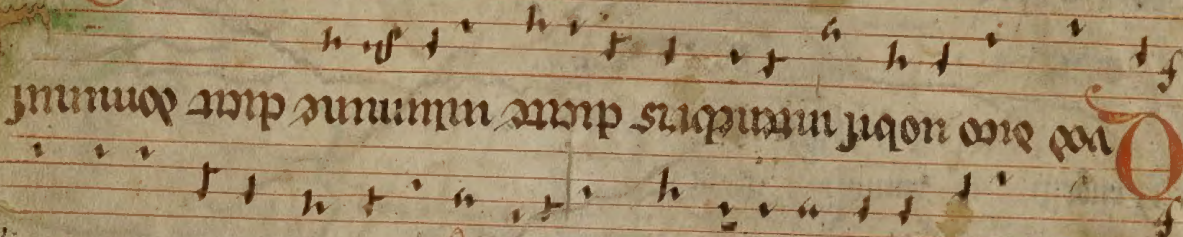 Quod dico uobis intenebris dicite inlumine dicit dominus